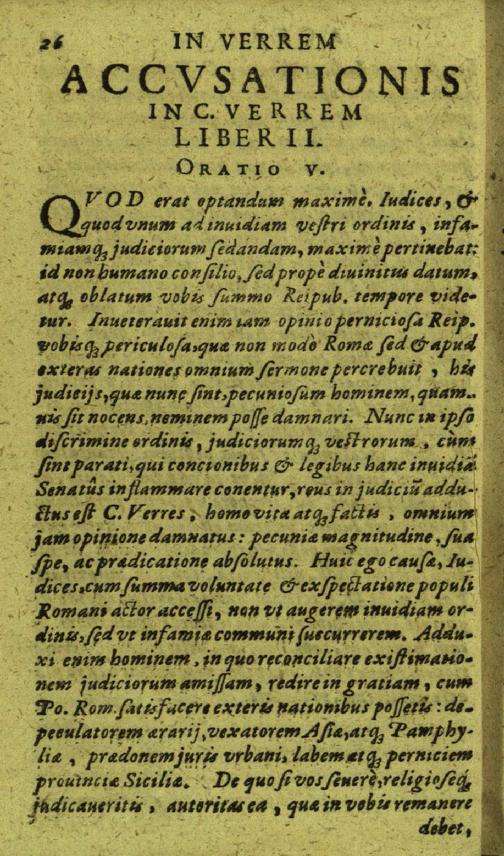 26 IN VERREM
ACCVSATIONIS
IN C. VERREM
LIBER II.
ORATIO V.
QVOD erat optandum maximè. Iudices, &
quod vnum ad inuidiam vestri ordinis, infa-
miamq; judiciorum sedandam, maximè pertinebat:
id non humano consilio, sed propè diuinitus datum,
atq; oblatum vobis summo Reipub. tempore vide-
tur. Inueterauit enim iam opinio perniciosa Reip.
vobisq; periculosa, quæ non modò Romæ sed & apud
exteras nationes omnium sermone percrebuit, his
judicijs, quæ nunc sint, pecuniosum hominem, quam-
uis sit nocens, neminem posse damnari. Nunc in ipso
discrimine ordinis, judiciorumq; vestrorum, cùm
sint parati, qui concionibus & legibus hanc inuidiã
Senatûs inflammare conentur, reus in judiciũ addu-
ctus est C. Verres, homo vita atq; factis, omnium
jam opinione damnatus: pecuniæ magnitudine, sua
spe, ac prædicatione absolutus. Huic ego causæ, Iu-
dices, cum summa voluntate & exspectatione populi
Romani actor accessi, non vt augerem inuidiam or-
dinis, sed vt infamiæ communi succurrerem. Addu-
xi enim hominem, in quo reconciliare existimatio-
nem judiciorum amissam, redire in gratiam, cum
Po. Rom. satisfacere exteris nationibus possetis: de-
peculatorem ærarij, vexatorem Asiæ, atq; Pamphy-
liæ, prædonem juris vrbani, labem atq; perniciem
prouinciæ Siciliæ. De quo si vos seuerè, religioseq;
judicaueritis, autoritas ea, quæ in vobis remanere
debet,